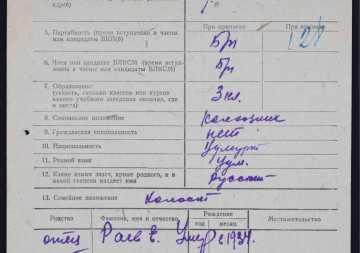 адрес)
При приписке
При призыве
5. Партийность (время вступления в члены
или кандидаты ВКП(б)
Б/п
128
6. Член или кандидат ВЛКСМ (время вступ-
ления в члены или кандидаты ВЛКСМ)
Б/п
7. Образование:
(указать, сколько классов или курсов
какого учебного заведения окончил, где
и когда)
3 кл.
8. Социальное положение
Колхозник
9. Гражданская специальность
нет
10. Национальность
Удмурт
11. Родной язык
Удм.
12. Какие языки знает, кроме родного, и в
какой степени владеет ими
Русский
13. Семейное положение
Холост
Родство
Фамилия, имя и отчество
Рождения
год
месяц
Местожительство
отец
Раев Е.
Умер с 1934.